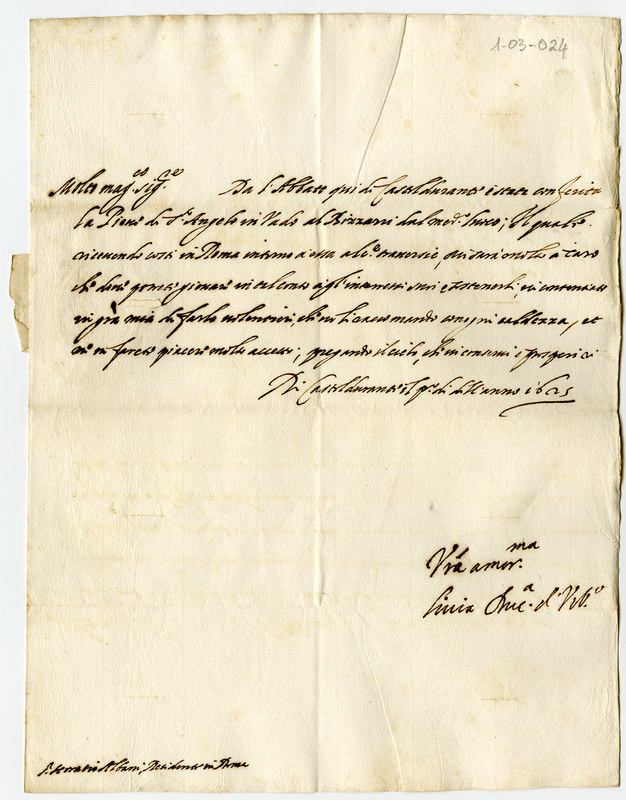 1-03-024
Molto mag.co sig.re Da l'Abbate qui di Casteldurante è stata conferita
la Pieve di S.to Angelo in Vado al Rizzarri dal med.o luoco; Il quale
ricevendo costì in Roma intorno a essa alc.e traversie, mi sarà molto a caro
che dove potrete giovare in tal conto agl'interessi suoi e sostenerli, vi contentiate
in grã mia di farlo volentieri, che ve li raccomando con ogni caldezza, et
me ne farete piacere molto accetto; pregando il cielo, che vi conservi e prosperi
Di Casteldurante il p.o di dell'anno 1625
Vrã amor.ma
Livia Duc.a d'Urb.o
S.r Horatio Albani, Residente in Roma